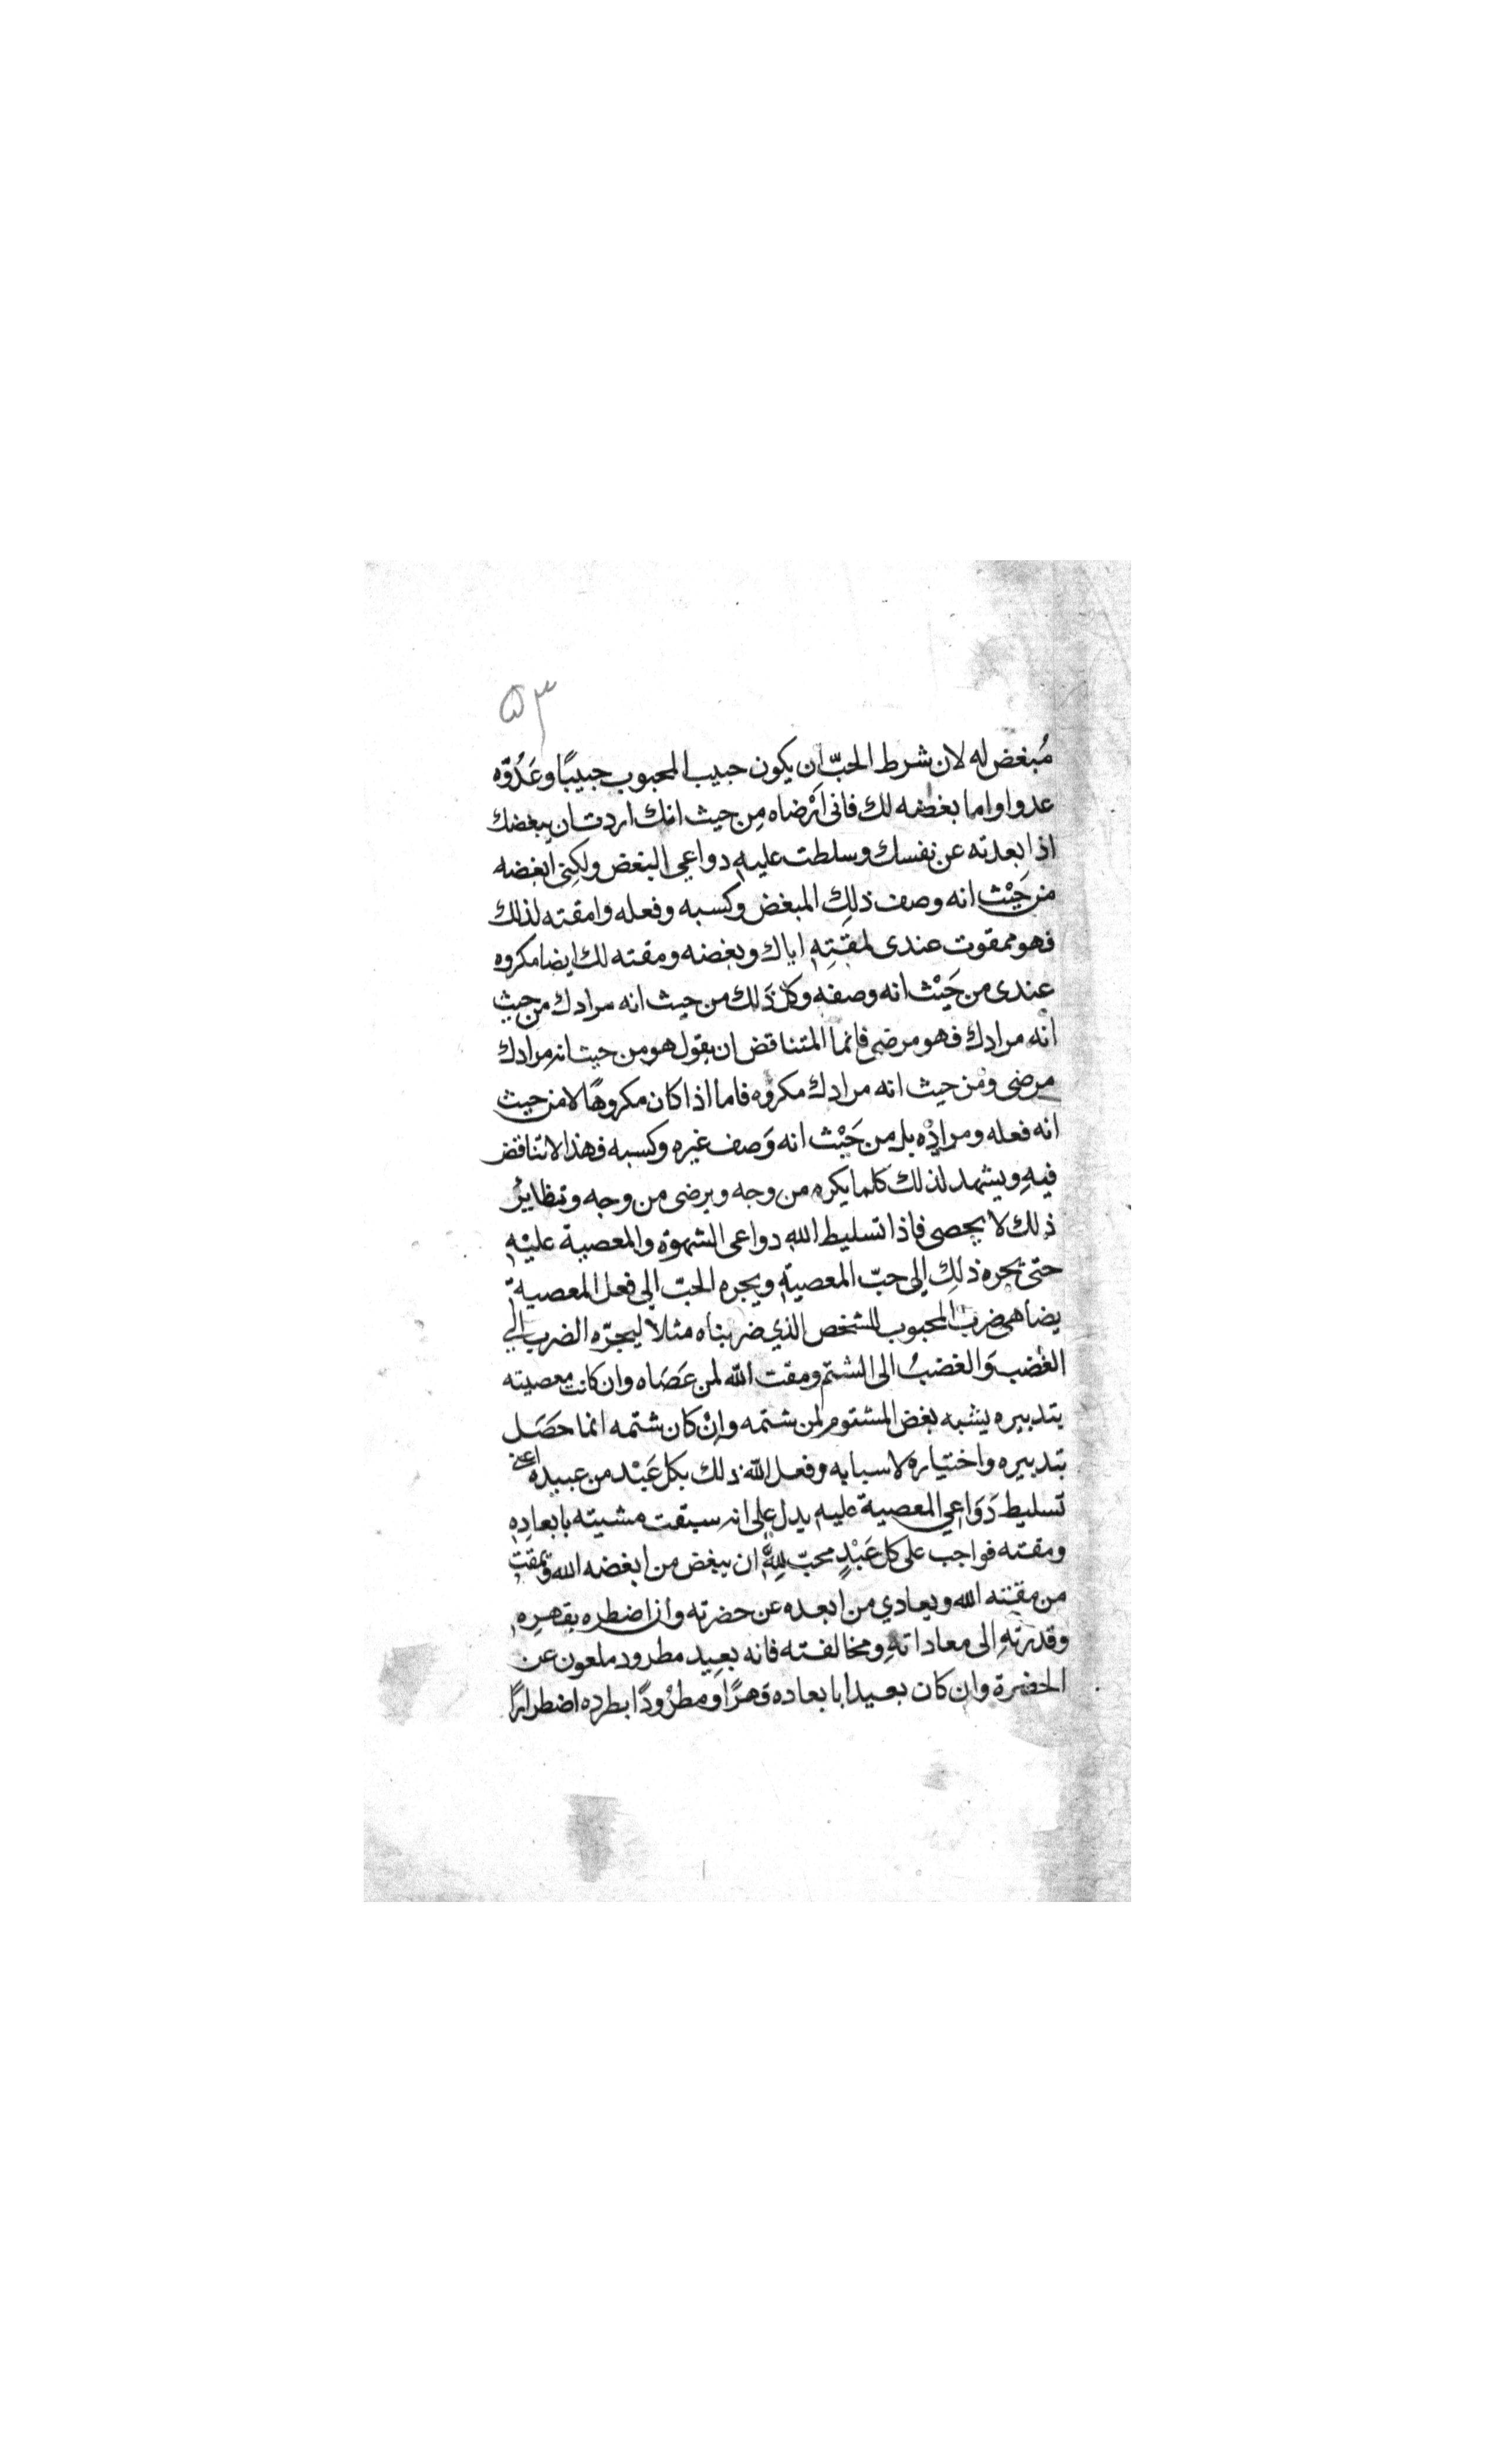 ٥٣
مُبغض له لان شرط الحبّ ان يكون حبيب المحبوب حبيبًا وعَدُوّه
عدوا واما بغضه لك فانى اَرْضاه مِن حيث انك اردت ان يبغضك
اذا بعدته عن نفسك وسلطت عليهِ دواعي البغض ولكِنى ابغضه
من حَيْث انه وصف ذلِك المبغض وكسبه وفعله وامقته لذلك
فهو ممقوت عندى لمقتِهِ اياك وبغضه ومقته لك ايضا مكروه
عندى من حَيْث انه وصفه وكل ذَلك من حيث انه مرادك من حيث
انه مرادك فهو مرضى فانما المتناقض ان يقول هو من حيث انه مرادك
مرضى ومن حيث انه مرادك مكروه فاما اذا كان مكروهًا لا من حيث
انه فعله ومراده بل من حَيْث انه وَصف غيره وكسبه فهذا لا تناقض
فيهِ ويشهد لذلك كلما يكره من وجه ويرضى من وجه ونظايرُ
ذلك لا يحصى فاذا تسليط الله دواعى الشهوة والمعصية عليْهِ
حتى يجره ذلِك إلى حبّ المعصيةِ ويجره الحبّ إلى فعل المعصية
يضاهى ضرب المحبوب للشخص الذي ضربناه مثلا ليجرّه الضرب إلى
الغضب وَالغضبُ الى الشتم ومقت الله لمن عَصَاه وان كانت معصيته
بتدبيره يشبه بغض المشتوم لمن شتمه وانْ كان شتمه انما حَصَل
بتدبيره واختياره لاسبابه وفعل الله ذلك بكل عَبْد من عبيده اعنى
تسليط دَوَاعي المعصية عليهِ يدل على انه سبقت مشيته بابعادِهِ
ومقته فواجب على كل عَبْدٍ محبّ لِلّهِ ان يبغض من ابغضه الله ويمقت
من مقته الله ويعادي من ابعده عن حضرته وان اضطره بقهرِهِ
وقدرتهِ إلى معاداتهِ ومخالفته فانه بعِيد مطرود ملعون عن
الحضرة وان كان بعيدا بابعاده قهرًا ومطرُودًا بطرده اضطرارًا